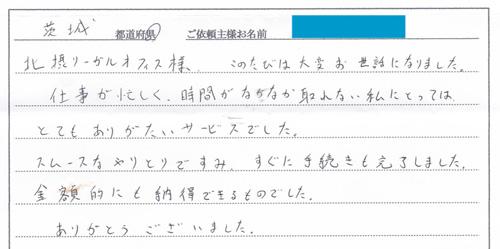 茨城 都道府県 ご依頼主様お名前
北摂リーガルオフィス様、このたびは大変お世話になりました。
仕事が忙しく、時間がなかなか取れない私にとっては、
とてもありがたいサービスでした。
スムースなやりとりですみ、すぐに手続きも完了しました。
金額的にも納得できるものでした。
ありがとうございました。